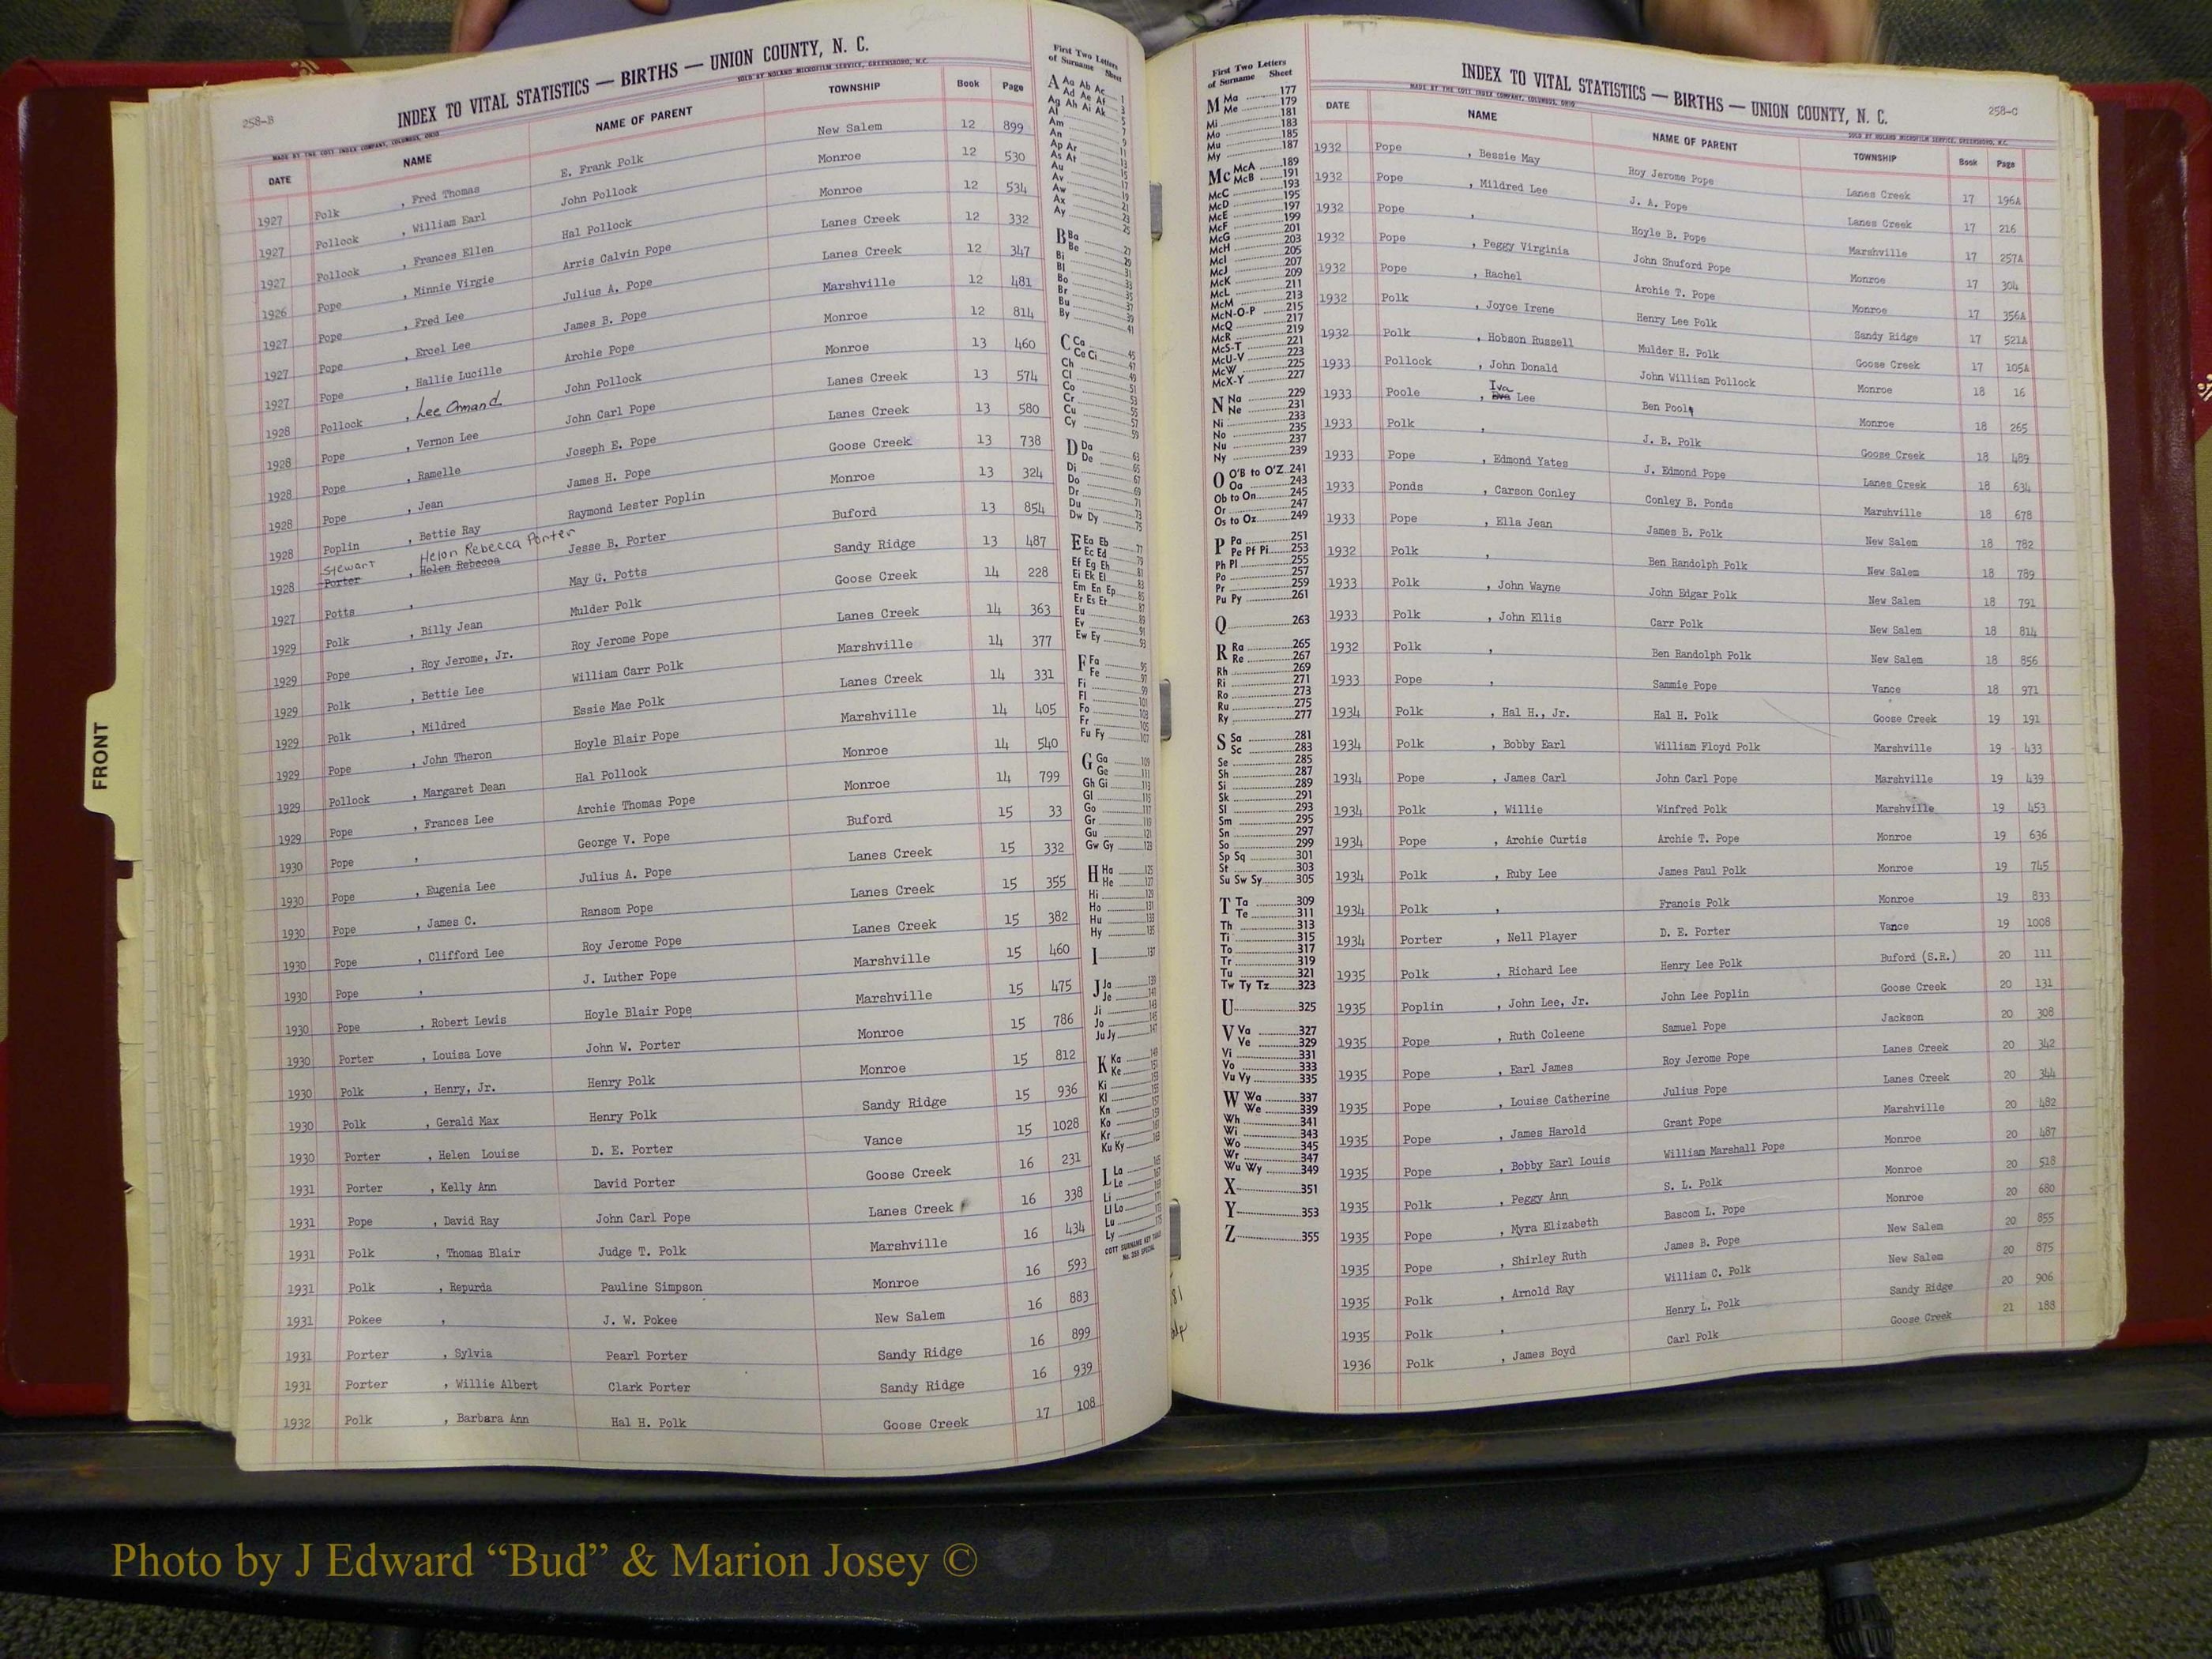 258-B
INDEX TO VITAL STATISTICS — BIRTHS — UNION COUNTY, N. C.
MADE BY THE COTT INDEX COMPANY, COLUMBUS, OHIO SOLD BY NOLAND MICROFILM SERVICE, GREENSBORO, N.C.
DATE NAME NAME OF PARENT TOWNSHIP Book Page
1927 Polk , Fred Thomas E. Frank Polk New Salem 12 899
1927 Pollock , William Earl John Pollock Monroe 12 530
1927 Pollock , Frances Ellen Hal Pollock Monroe 12 534
1926 Pope , Minnie Virgie Arris Calvin Pope Lanes Creek 12 332
1927 Pope , Fred Lee Julius A. Pope Lanes Creek 12 347
1927 Pope , Ercel Lee James B. Pope Marshville 12 481
1927 Pope , Hallie Lucille Archie Pope Monroe 12 814
1928 Pollock , Lee Omand John Pollock Monroe 13 460
1928 Pope , Vernon Lee John Carl Pope Lanes Creek 13 574
1928 Pope , Ramelle Joseph E. Pope Lanes Creek 13 580
1928 Pope , Jean James H. Pope Goose Creek 13 738
1928 Poplin , Bettie Ray Raymond Lester Poplin Monroe 13 324
Stewart Helon Rebecca Porter
1928 Porter , Helen Rebecca Jesse B. Porter Buford 13 854
1927 Potts , May G. Potts Sandy Ridge 13 487
1929 Polk , Billy Jean Mulder Polk Goose Creek 14 228
1929 Pope , Roy Jerome, Jr. Roy Jerome Pope Lanes Creek 14 363
1929 Polk , Bettie Lee William Carr Polk Marshville 14 377
1929 Polk , Mildred Essie Mae Polk Lanes Creek 14 331
1929 Pope , John Theron Hoyle Blair Pope Marshville 14 405
1929 Pollock , Margaret Dean Hal Pollock Monroe 14 540
1929 Pope , Frances Lee Archie Thomas Pope Monroe 14 799
1930 Pope , George V. Pope Buford 15 33
1930 Pope , Eugenia Lee Julius A. Pope Lanes Creek 15 332
1930 Pope , James C. Ransom Pope Lanes Creek 15 355
1930 Pope , Clifford Lee Roy Jerome Pope Lanes Creek 15 382
1930 Pope , J. Luther Pope Marshville 15 460
1930 Pope , Robert Lewis Hoyle Blair Pope Marshville 15 475
1930 Porter , Louisa Love John W. Porter Monroe 15 786
1930 Polk , Henry, Jr. Henry Polk Monroe 15 812
1930 Polk , Gerald Max Henry Polk Sandy Ridge 15 936
1930 Porter , Helen Louise D. E. Porter Vance 15 1028
1931 Porter , Kelly Ann David Porter Goose Creek 16 231
1931 Pope , David Ray John Carl Pope Lanes Creek 16 338
1931 Polk , Thomas Blair Judge T. Polk Marshville 16 434
1931 Polk , Repurda Pauline Simpson Monroe 16 593
1931 Pokee , J. W. Pokee New Salem 16 883
1931 Porter , Sylvia Pearl Porter Sandy Ridge 16 899
1931 Porter , Willie Albert Clark Porter Sandy Ridge 16 939
1932 Polk , Barbara Ann Hal H. Polk Goose Creek 17 108
First Two Letters
of Surname Sheet
A Aa Ab Ac 1
Ad Ae Af 3
Ag Ah Ai Ak 5
Al 7
Am 9
An 11
Ap Ar 13
As At 15
Au 17
Av 19
Aw 21
Ax 23
Ay 25
B Ba 27
Be 29
Bi 31
Bl 33
Bo 35
Br 37
Bu 39
By 41
C Ca 45
Ce Ci 47
Ch 49
Cl 51
Co 53
Cr 55
Cu 57
Cy 59
D Da 63
De 65
Di 67
Do 69
Dr 71
Du 73
Dw Dy 75
E Ea Eb 77
Ec Ed 79
Ef Eg Eh 81
Ei Ek El 83
Em En Ep 85
Er Es Et 87
Eu 89
Ev 91
Ew Ey 93
F Fa 95
Fe 97
Fi 99
Fl 101
Fo 103
Fr 105
Fu Fy 107
G Ga 109
Ge 111
Gh Gi 113
Gl 115
Go 117
Gr 119
Gu 121
Gw Gy 123
H Ha 125
He 127
Hi 129
Ho 131
Hu 133
Hy 135
I 137
J Ja 139
Je 141
Ji 143
Jo 145
Ju Jy 147
K Ka 149
Ke 151
Ki 153
Kl 155
Kn 157
Ko 161
Kr 161
Ku Ky 163
L La 165
Le 167
Li 169
Ll Lo 171
Lu 173
Ly 175
COTT SURNAME KEY TABLE
No. 253 SPECIAL
First Two Letters
of Surname Sheet
M Ma 177
Me 179
Mi 181
Mo 183
Mu 185
My 187
Mc McA 189
McB 191
McC 193
McD 195
McE 197
McF 199
McG 201
McH 203
McI 205
McJ 207
McK 209
McL 211
McM 213
McN-O-P 215
McQ 217
McR 219
McS-T 221
McU-V 223
McW 225
McX-Y 227
N Na 229
Ne 231
Ni 233
No 235
Nu 237
Ny 239
O O'B to O'Z 241
Oa 243
Ob to On 245
Or 247
Os to Oz 249
P Pa 251
Pe Pf Pi 253
Ph Pl 255
Po 257
Pr 259
Pu Py 261
Q 263
R Ra 265
Re 267
Rh 269
Ri 271
Ro 273
Ru 275
Ry 277
S Sa 281
Sc 283
Se 285
Sh 287
Si 289
Sk 291
Sl 293
Sm 295
Sn 297
So 299
Sp Sq 301
St 303
Su Sw Sy 305
T Ta 309
Te 311
Th 313
Ti 315
To 317
Tr 319
Tu 321
Tw Ty Tz 323
U 325
V Va 327
Ve 329
Vi 331
Vo 333
Vu Vy 335
W Wa 337
We 339
Wh 341
Wi 343
Wo 345
Wr 347
Wu Wy 349
X 351
Y 353
Z 355
258-C
INDEX TO VITAL STATISTICS — BIRTHS — UNION COUNTY, N. C.
MADE BY THE COTT INDEX COMPANY, COLUMBUS, OHIO SOLD BY NOLAND MICROFILM SERVICE, GREENSBORO, N.C.
DATE NAME NAME OF PARENT TOWNSHIP Book Page
1932 Pope , Bessie May Roy Jerome Pope Lanes Creek 17 196A
1932 Pope , Mildred Lee J. A. Pope Lanes Creek 17 216
1932 Pope , Hoyle B. Pope Marshville 17 257A
1932 Pope , Peggy Virginia John Shuford Pope Monroe 17 304
1932 Pope , Rachel Archie T. Pope Monroe 17 356A
1932 Polk , Joyce Irene Henry Lee Polk Sandy Ridge 17 521A
1932 Polk , Hobson Russell Mulder H. Polk Goose Creek 17 105A
1933 Pollock , John Donald John William Pollock Monroe 18 16
1933 Poole , Iva Lee Ben Poole Monroe 18 265
1933 Polk , J. B. Polk Goose Creek 18 489
1933 Pope , Edmond Yates J. Edmond Pope Lanes Creek 18 634
1933 Ponds , Carson Conley Conley B. Ponds Marshville 18 678
1933 Pope , Ella Jean James B. Polk New Salem 18 782
1932 Polk , Ben Randolph Polk New Salem 18 789
1933 Polk , John Wayne John Edgar Polk New Salem 18 791
1933 Polk , John Ellis Carr Polk New Salem 18 814
1932 Polk , Ben Randolph Polk New Salem 18 856
1933 Pope , Sammie Pope Vance 18 971
1934 Polk , Hal H., Jr. Hal H. Polk Goose Creek 19 191
1934 Polk , Bobby Earl William Floyd Polk Marshville 19 433
1934 Pope , James Carl John Carl Pope Marshville 19 439
1934 Polk , Willie Winfred Polk Marshville 19 453
1934 Pope , Archie Curtis Archie T. Pope Monroe 19 636
1934 Polk , Ruby Lee James Paul Polk Monroe 19 745
1934 Polk , Francis Polk Monroe 19 833
1934 Porter , Nell Player D. E. Porter Vance 19 1008
1935 Polk , Richard Lee Henry Lee Polk Buford (S.R.) 20 111
1935 Poplin , John Lee, Jr. John Lee Poplin Goose Creek 20 131
1935 Pope , Ruth Coleene Samuel Pope Jackson 20 308
1935 Pope , Earl James Roy Jerome Pope Lanes Creek 20 342
1935 Pope , Louise Catherine Julius Pope Lanes Creek 20 344
1935 Pope , James Harold Grant Pope Marshville 20 482
1935 Pope , Bobby Earl Louis William Marshall Pope Monroe 20 487
1935 Polk , Peggy Ann S. L. Polk Monroe 20 518
1935 Pope , Myra Elizabeth Bascom L. Pope Monroe 20 680
1935 Pope , Shirley Ruth James B. Pope New Salem 20 855
1935 Polk , Arnold Ray William C. Polk New Salem 20 875
1935 Polk , Henry L. Polk Sandy Ridge 20 906
1936 Polk , James Boyd Carl Polk Goose Creek 21 188
FRONT
Photo by J Edward “Bud” & Marion Josey ©